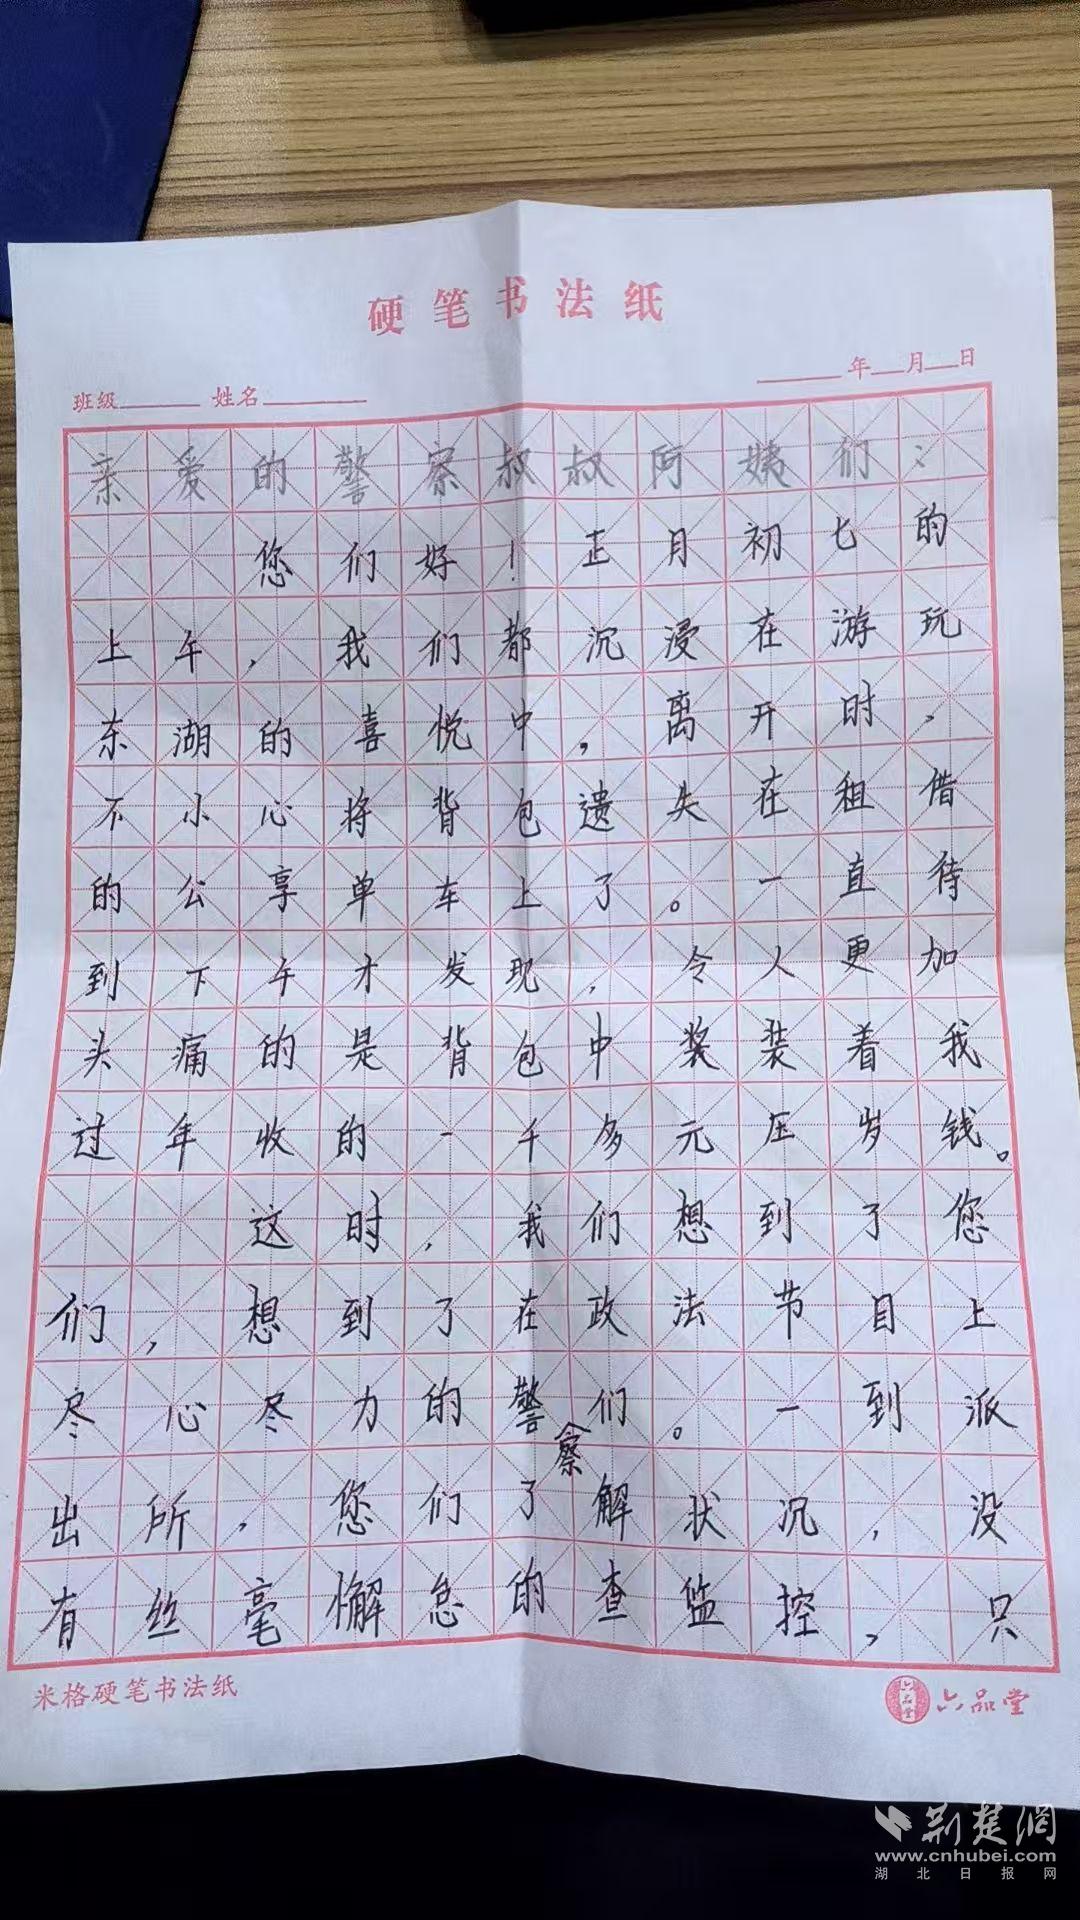 硬笔书法纸
班级 姓名 年 月 日
亲爱的警察叔叔阿姨们：
您们好！正月初七的
上午，我们都沉浸在游玩
东湖的喜悦中，离开时、
不小心将背包遗失在租借
的公享单车上了。一直待
到下午才发现，令人更加
头痛的是背包中装着我
过年收的一千多元压岁钱。
这时，我们想到了您
们，想到了在政法节目上
尽心尽力的警察们。一到派
出所，您们了解状况，没
有丝毫懈怠的查监控，只
米格硬笔书法纸 六品堂 六品堂
荆楚网
www.cnhubei.com
湖北日报网